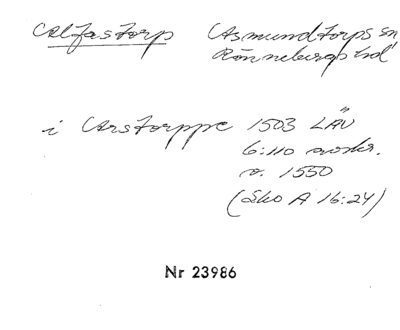 Alfastorp Asmundtorps sn
Rönnebergs hd
i Arstorppe 1503 LÄU
6:110 avskr.
v. 1550
(Sko A 16:24)
Nr 23986